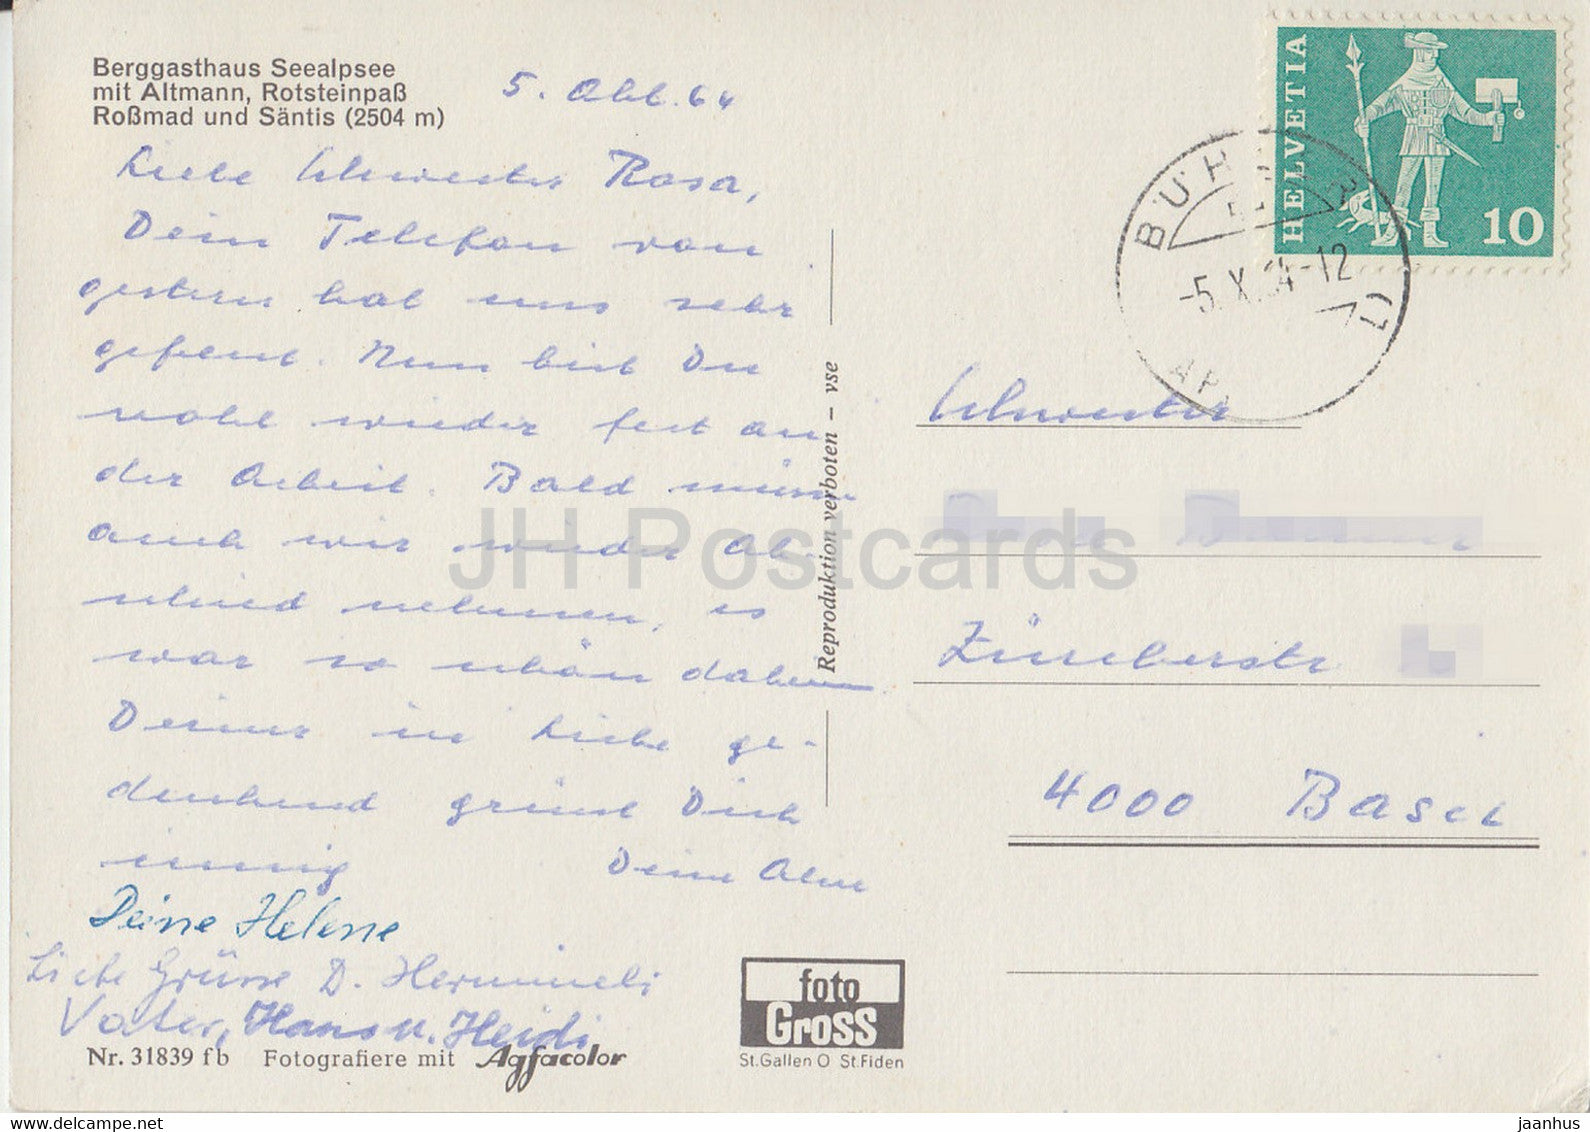 Berggasthaus Seealpsee
mit Altmann, Rotsteinpaß
Roßmad und Säntis (2504 m)
5. Okt. 64
Liebe Schwester Rosa,
Dein Telefon von
gestern hat uns sehr
gefreut. Nun bist Du
wohl wieder fest an
der Arbeit. Bald müssen
auch wir wieder Ab-
schied nehmen, es
war so schön daheim
Deiner in Liebe ge-
denkend grüsst Dich
innig Deine
Deine Helene
Liebe Grüsse D. Hermineli
Vater, Hans u. Heidi
Nr. 31839 fb Fotografiere mit Agfacolor
Reproduktion verboten – vse
foto
Gross
St.Gallen O St.Fiden
HELVETIA
10
BÜHLER
-5.X.64-12
Schwester
Zürcherstr
4000 Basel
JH Postcards
www.delcampe.net
jaanhus